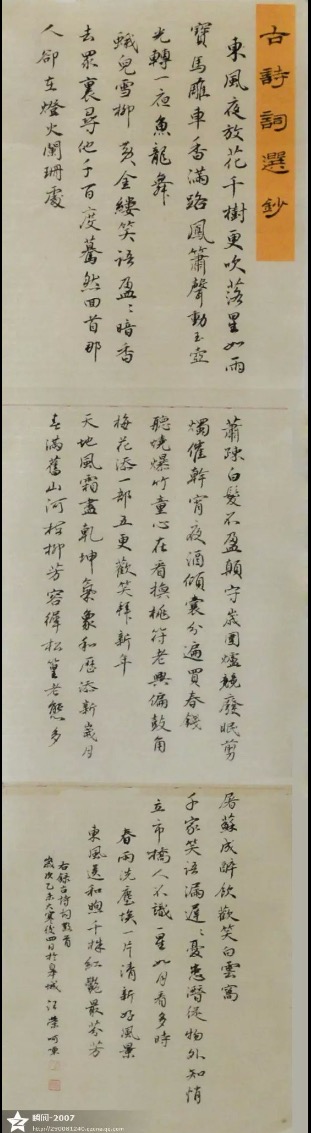 古詩詞選鈔
東風夜放花千樹更吹落星如雨
寶馬雕車香滿路鳳簫聲動玉壺
光轉一夜魚龍舞
蛾兒雪柳黃金縷笑語盈〻暗香
去眾裏尋他千百度驀然回首那
人卻在燈火闌珊處
蕭疎白髮不盈顛守歲圍爐競廢眠剪
燭催幹宵夜酒傾囊分遍買春錢
聽燒爆竹童心在看換桃符老興偏鼓角
梅花添一部五更歡笑拜新年
天地風霜盡乾坤氣象和歷添新歲月
春滿舊山河梅柳芳容徲松篁老態多
屠蘇成醉飲歡笑白雲窩
千家笑語漏遲〻憂患潛從物外知悄
立市橋人不識一星如月看多時
春雨洗塵埃一片清新好風景
東風送和煦千株紅艷最芬芳
右錄古詩詞數首
歲次乙未大寒後四日於阜城汪榮
瞬间-2007